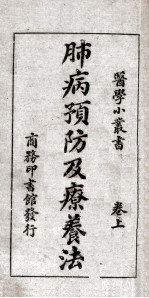 醫學小叢書 卷上
肺病預防及療養法
商務印書館發行